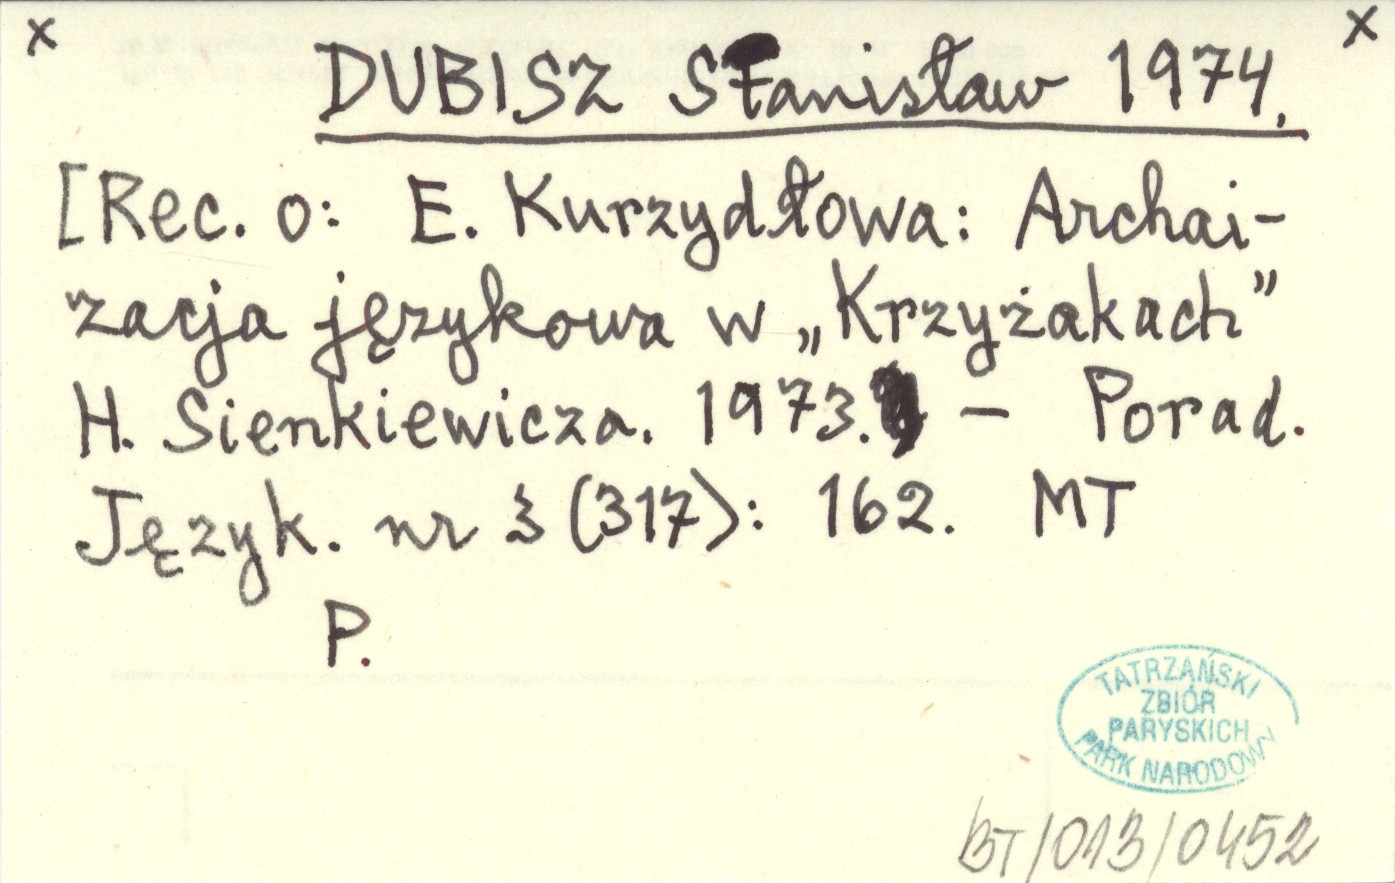 x x
DUBISZ Stanisław 1974.
[Rec. o: E. Kurzydłowa: Archai-
zacja językowa w „Krzyżakach”
H. Sienkiewicza. 1973. – Porad.
Język. nr 3 (317): 162. MT
P.
TATRZAŃSKI
ZBIÓR
PARYSKICH
PARK NARODOWY
BT/013/0452